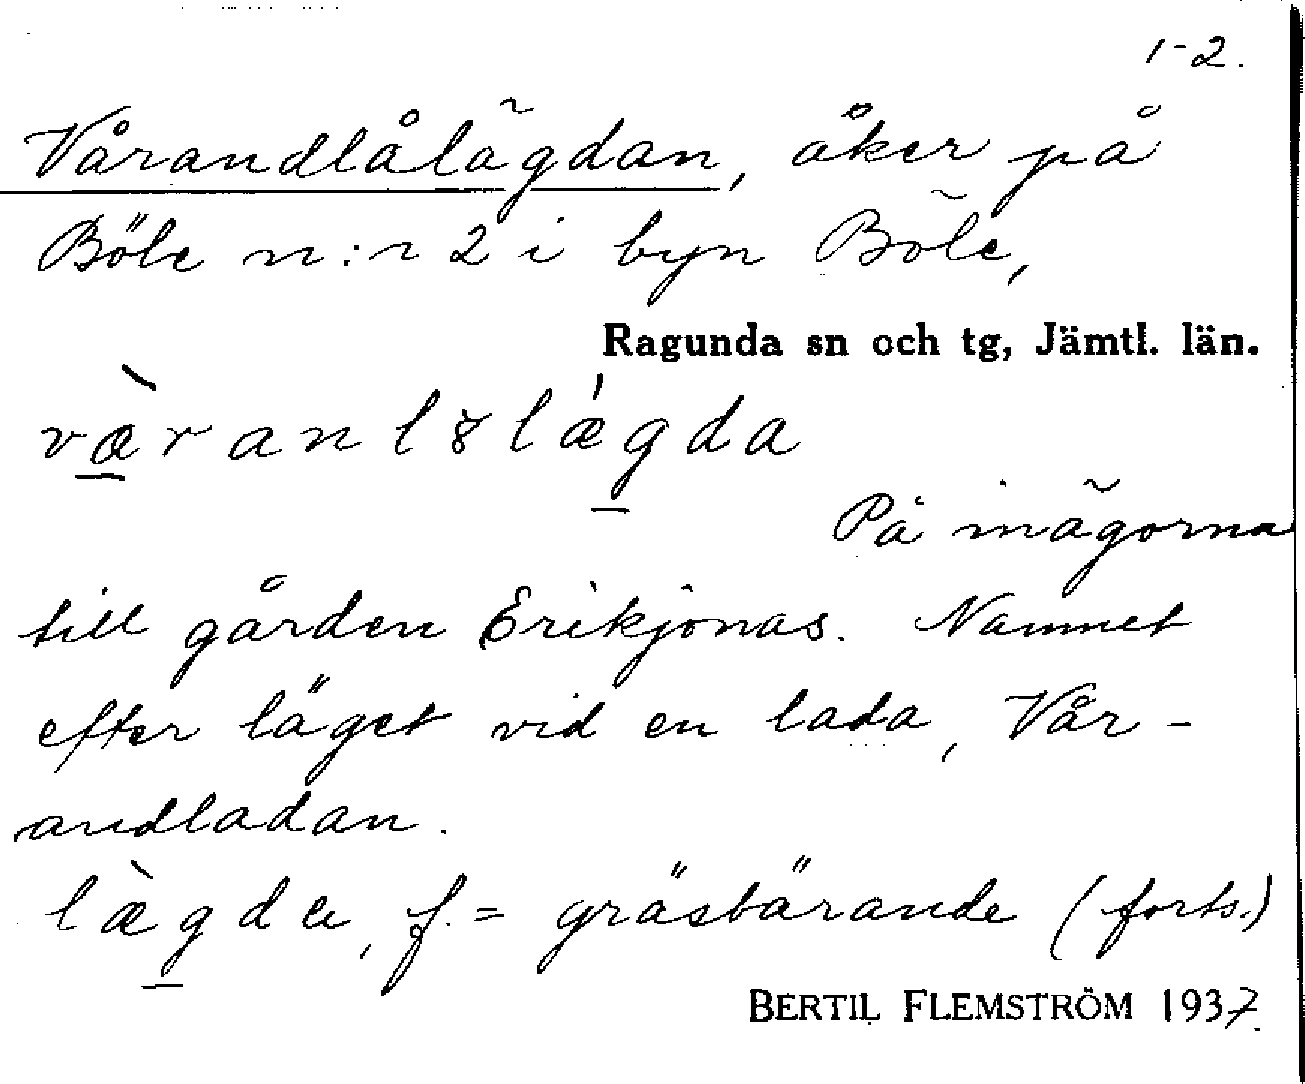 1-2.
Vårandlålägdan, åker på
Böle n:r 2 i byn Böle,
Ragunda sn och tg, Jämtl. län.
På inägorna
till gården Erikjonas. Namnet
efter läget vid en lada, Vår-
andladan.
læ̀gda, f. = gräsbärande (forts.)
BERTIL FLEMSTRÖM 1937